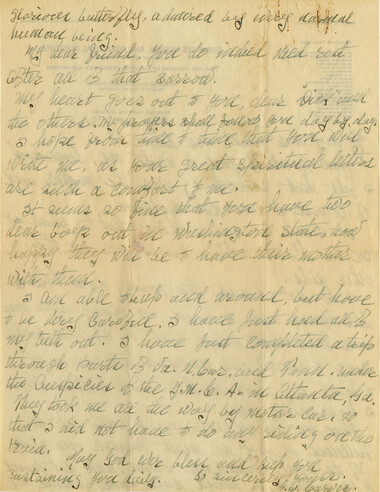 glorious butterfly, admired by every normal
human being.
My dear friend, you do indeed need rest
after all of that sorrow.
My heart goes out to you, dear and
the others. My prayers shall follow you day by day.
I hope from time to time that you will
write me, as your great spiritual letters
are such a comfort to me.
It seems so fine that you have two
dear boys out in Washington State, now
happy they will be to have their mother
with them.
I am able to up and around, but have
to be very careful. I have just had all of
my teeth out. I have just completed a trip
through parts of Va. N. Car. and Tenn. under
the auspicies of the Y.M.C.A. in Atlanta, Ga.
They took me all the way by motor car. so
that I did not have to do any riding on the
train.
May God ever bless and keep you
sustaining you daily. So sincerely yours,